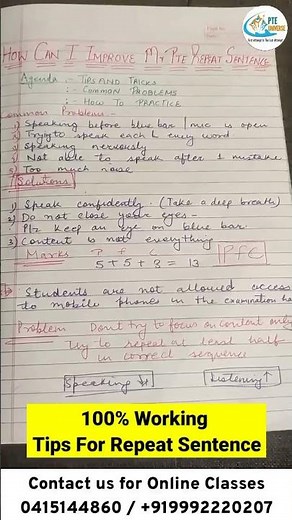 PTE
UNIVERSE
HOW CAN I IMPROVE MY PTE REPEAT SENTENCE
Agenda :- TIPS AND TRICKS
:- COMMON PROBLEMS
:- HOW TO PRACTICE
Common Problems :-
1) Speaking before blue bar / mic is open
2) Trying to speak each & every word
3) Speaking nervously
4) Not able to speak after 1 mistake
5) Too much noise
Solutions
1) Speak confidently. (Take a deep breath)
2) Do not close your eyes -
Plz keep an eye on blue bar
3) Content is not everything
Marks P F C PFC
5 + 5 + 3 = 13
Students are not allowed access
to mobile phones in the examination
Problem Don't try to focus on content only
Try to repeat at least half
in correct sequence
Speaking Listening ↑
100% Working
Tips For Repeat Sentence
Contact us for Online Classes
0415144860 / +919992220207